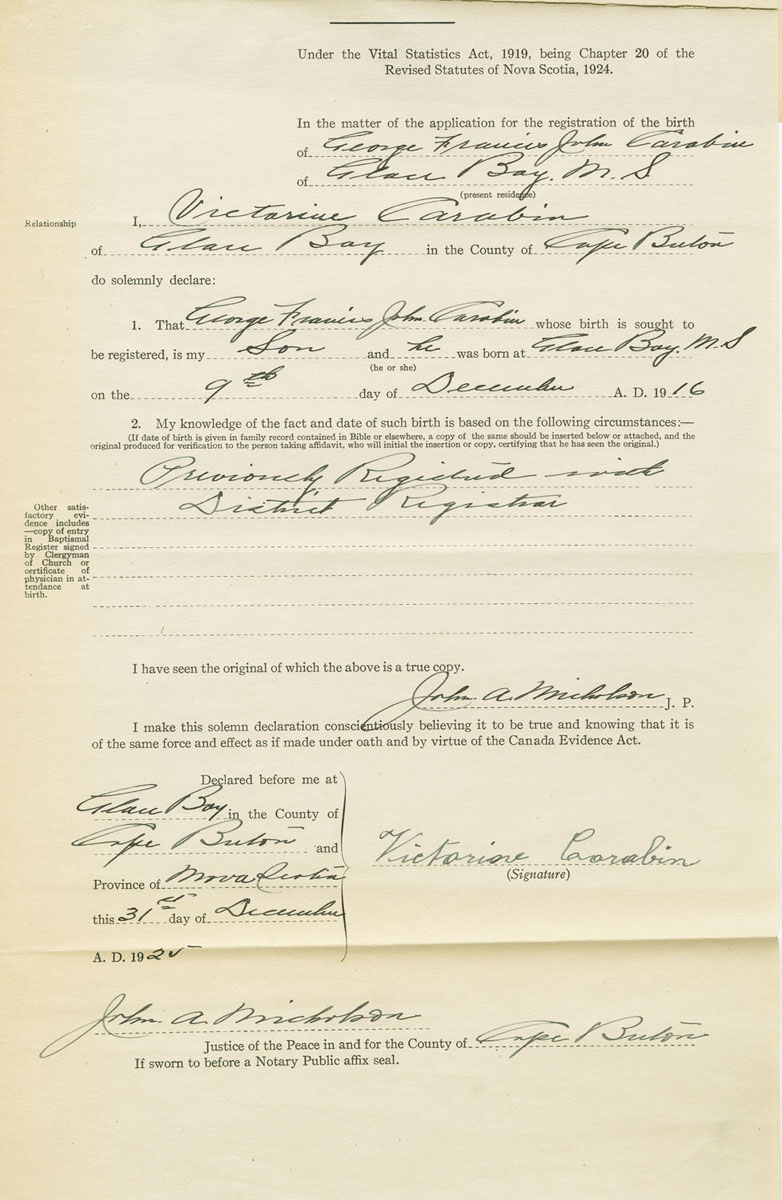 Under the Vital Statistics Act, 1919, being Chapter 20 of the
Revised Statutes of Nova Scotia, 1924.
In the matter of the application for the registration of the birth
of George Francis John Carabin
of Glace Bay. N. S
(present residence)
Relationship
I, Victorine Carabin
of Glace Bay in the County of Cape Breton
do solemnly declare:
1. That George Francis John Carabin whose birth is sought to
be registered, is my Son and he was born at Glace Bay. N. S
(he or she)
on the 9th day of December A. D. 1916
2. My knowledge of the fact and date of such birth is based on the following circumstances:—
(If date of birth is given in family record contained in Bible or elsewhere, a copy of the same should be inserted below or attached, and the
original produced for verification to the person taking affidavit, who will initial the insertion or copy, certifying that he has seen the original.)
Previously Registered with
District Registrar
Other satis-
factory evi-
dence includes
—copy of entry
in Baptismal
Register signed
by Clergyman
of Church or
certificate of
physician in at-
tendance at
birth.
I have seen the original of which the above is a true copy.
John A. Nicholson J. P.
I make this solemn declaration conscientiously believing it to be true and knowing that it is
of the same force and effect as if made under oath and by virtue of the Canada Evidence Act.
Declared before me at
Glace Bay in the County of
Cape Breton and
Province of Nova Scotia
this 31st day of December
A. D. 1925
Victorine Carabin
(Signature)
John A. Nicholson
Justice of the Peace in and for the County of Cape Breton
If sworn to before a Notary Public affix seal.